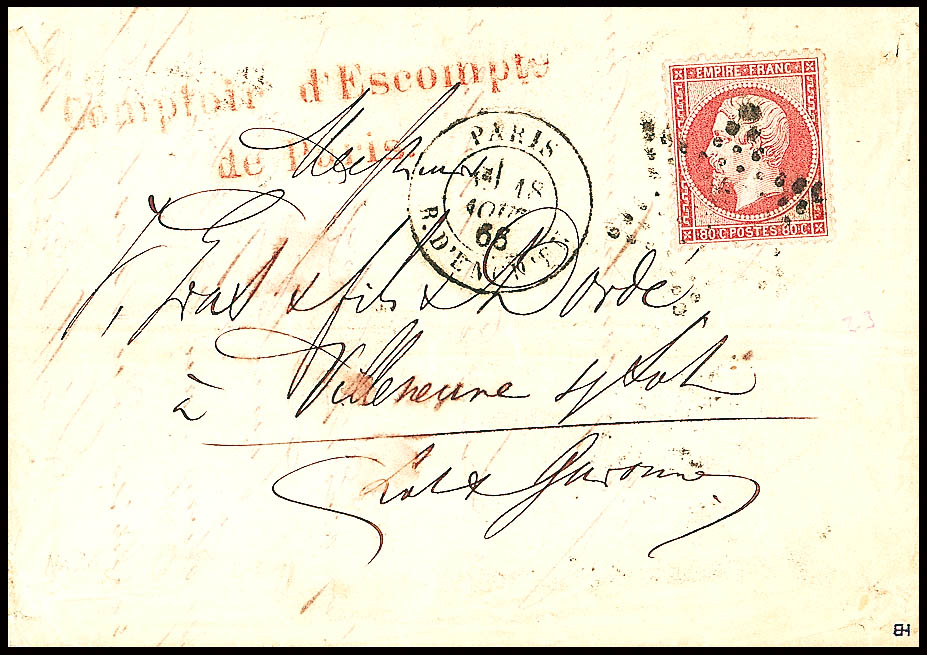 Comptoir d'Escompte
de Paris.
EMPIRE FRANC
80 C POSTES 80 C
PARIS
18
AOUT
66
R. D'ENGHIEN
Messieurs
fils & Bordé
à Villeneuve s/ Lot
Lot & Garonne
23